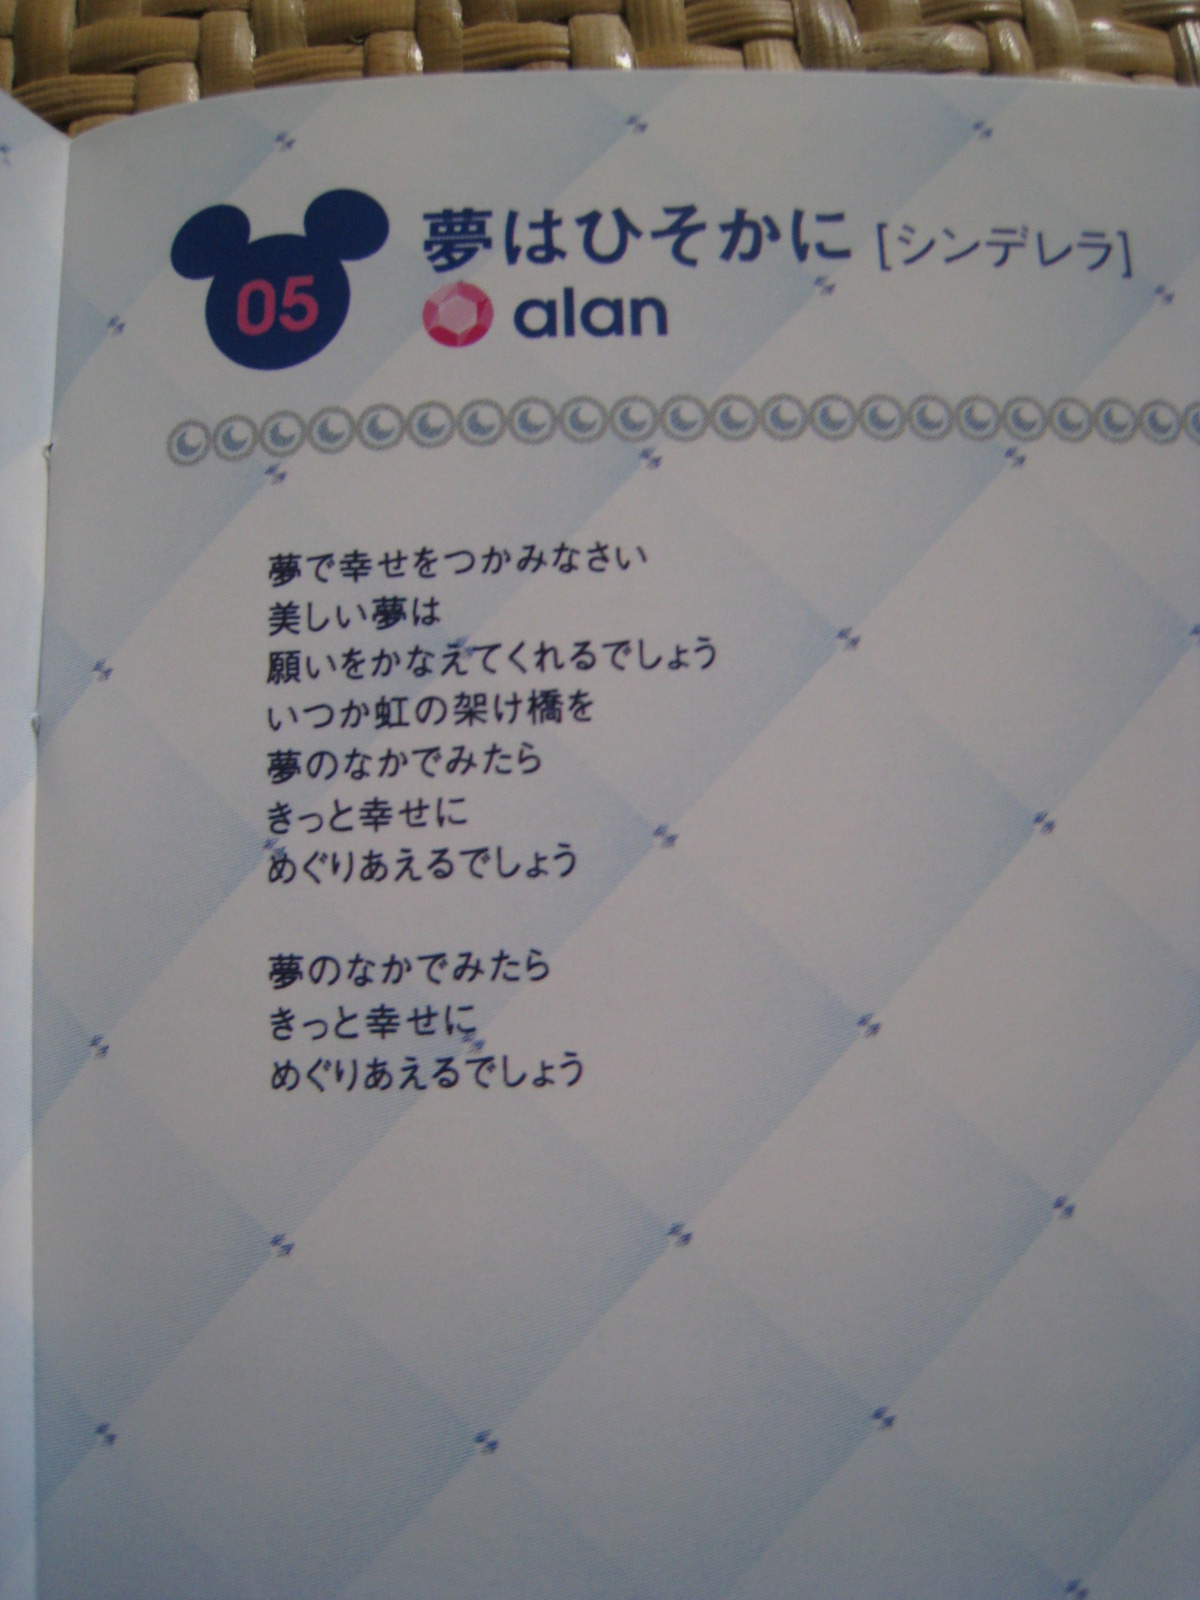 05
夢はひそかに [シンデレラ]
alan
夢で幸せをつかみなさい
美しい夢は
願いをかなえてくれるでしょう
いつか虹の架け橋を
夢のなかでみたら
きっと幸せに
めぐりあえるでしょう
夢のなかでみたら
きっと幸せに
めぐりあえるでしょう